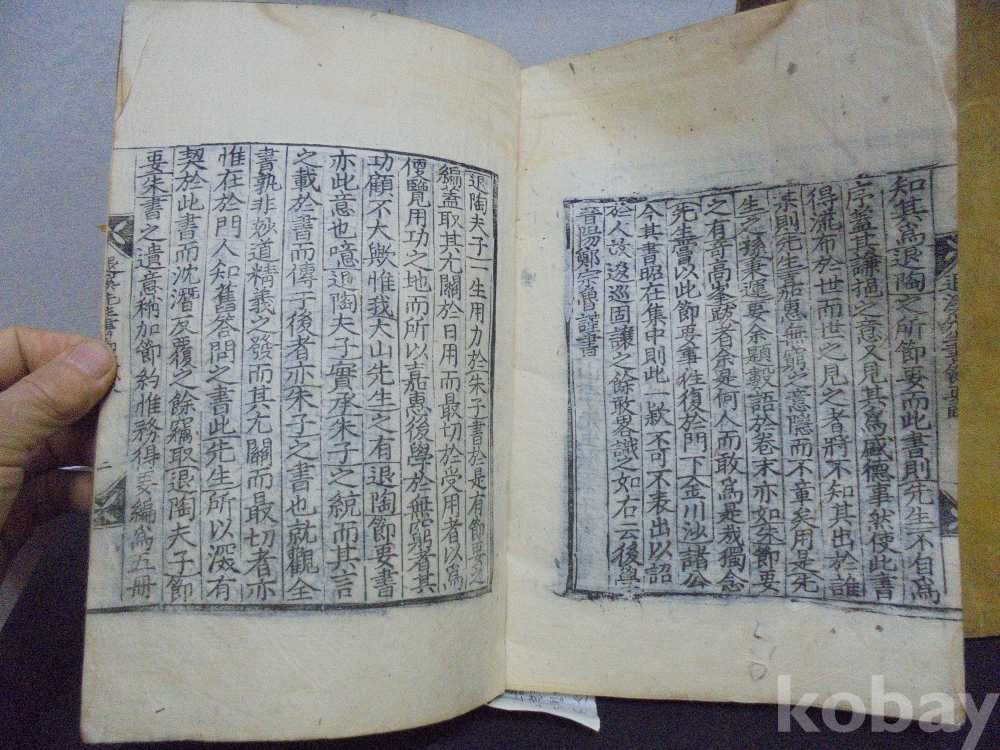 知其爲退陶之所節要而此書則先生不自爲
序盖其謙挹之意又見其爲盛德事然使此書
得流布於世而世之見之者將不知其出於誰
某則先生嘉惠無窮之意隱而不章矣用是先
生之孫秉運要余題數語於卷末亦如朱節要
之有奇高峯跋者余是何人而敢爲是哉獨念
先生嘗以此節要事往復於門下金川沙諸公
今其書昭在集中則此一欵不可不表出以詔
於人故逡巡固讓之餘敢畧識之如右云後學
晉陽鄭宗魯謹書
退陶夫子一生用力於朱子書於是有節要之
編盖取其尤關於日用而最切於受用者以爲
便覽用功之地而所以嘉惠後學於無窮者其
功顧不大歟惟我大山先生之有退陶節要書
亦此意也噫退陶夫子實承朱子之統而其言
之載於書而傳于後者亦朱子之書也就觀全
書孰非妙道精義之發而其尤關而最切者亦
惟在於門人知舊答問之書此先生所以深有
契於此書而沈潛反覆之餘竊取退陶夫子節
要朱書之遺意稍加節約惟務得要編爲五冊
二
kobay